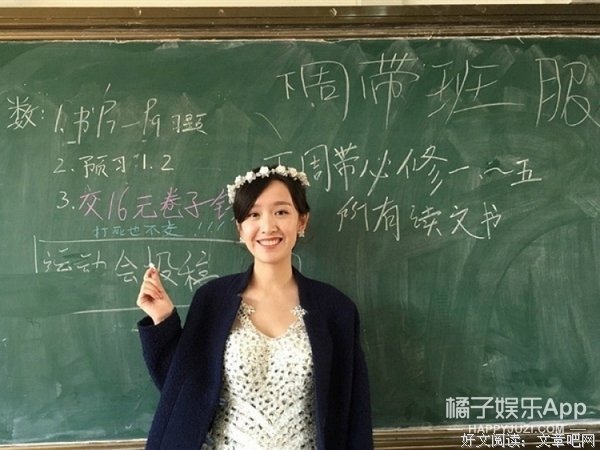 下周带班服
数:1.书P7-P9习题
2.预习1.2
3.交16元卷子
打死也不交!!!
运动会投稿
下周带必修一~五
所有读文书
橘子娱乐App
HAPPYJUZI.COM
好文阅读:文章吧网